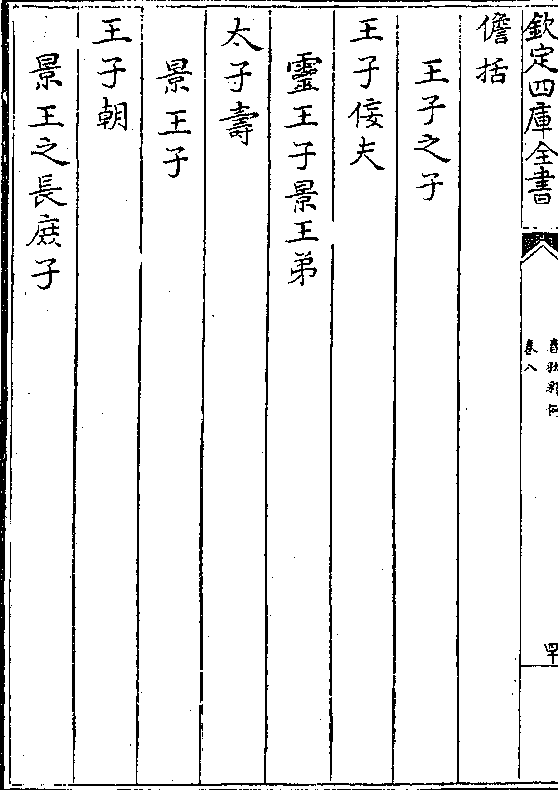 欽定四庫全書
卷八
儋括
王子之子
王子佞夫
靈王子景王弟
太子壽
景王子
王子朝
景王之長庶子